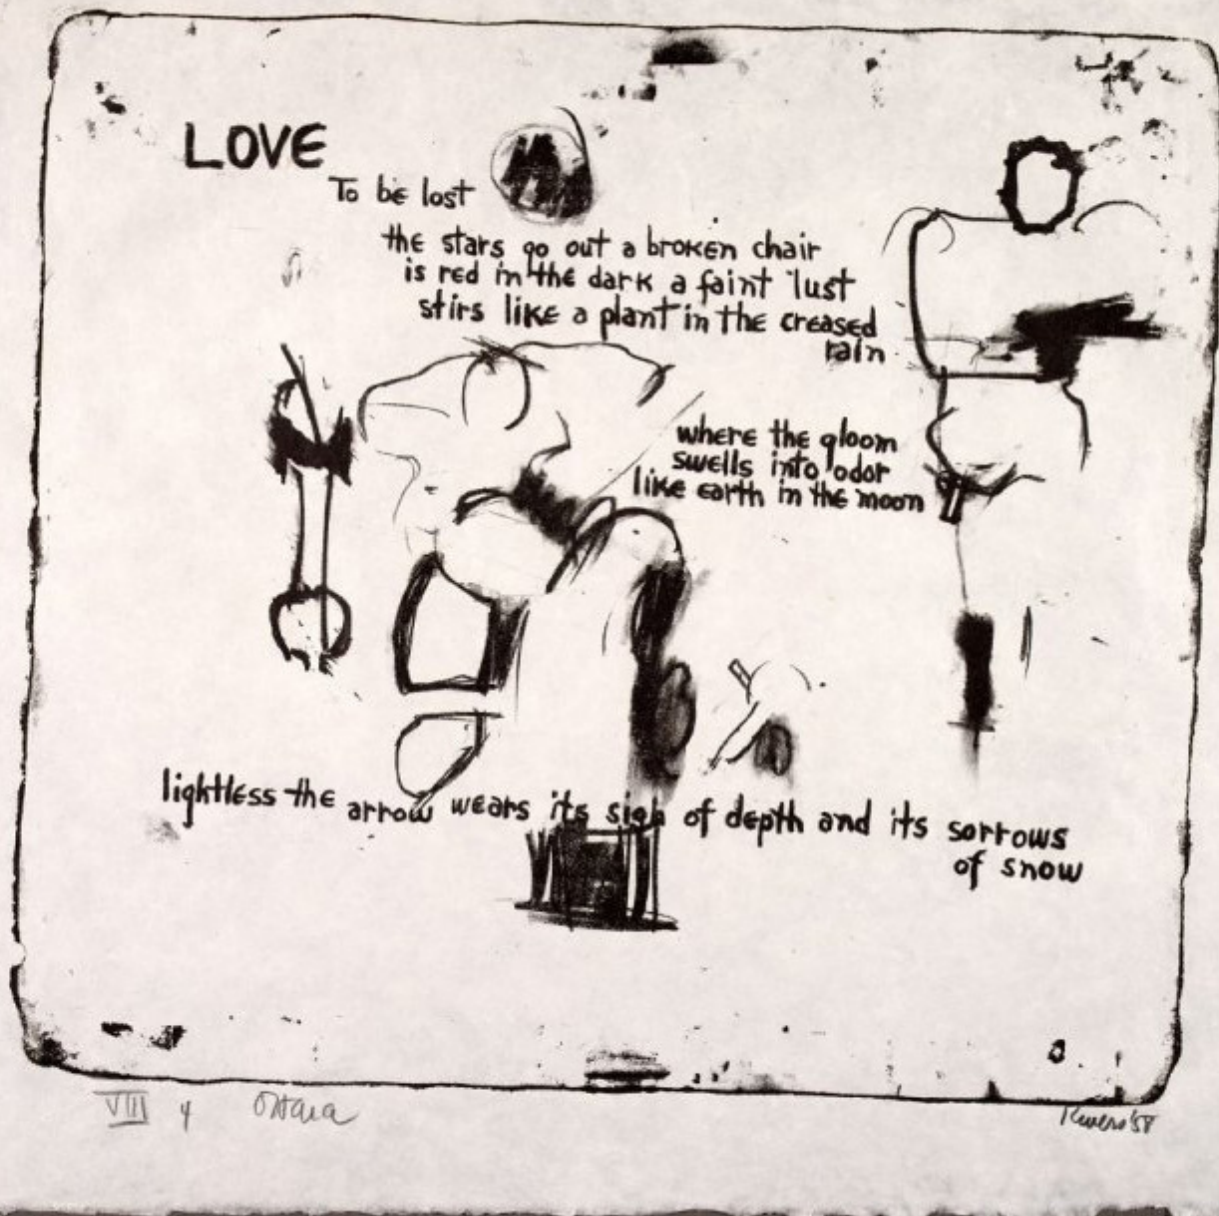 LOVE
To be lost
the stars go out a broken chair
is red in the dark a faint lust
stirs like a plant in the creased
rain
where the gloom
swells into odor
like earth in the moon
lightless the arrow wears its sigh of depth and its sorrows
of snow
VIII 4 O'Hara Rivers '58